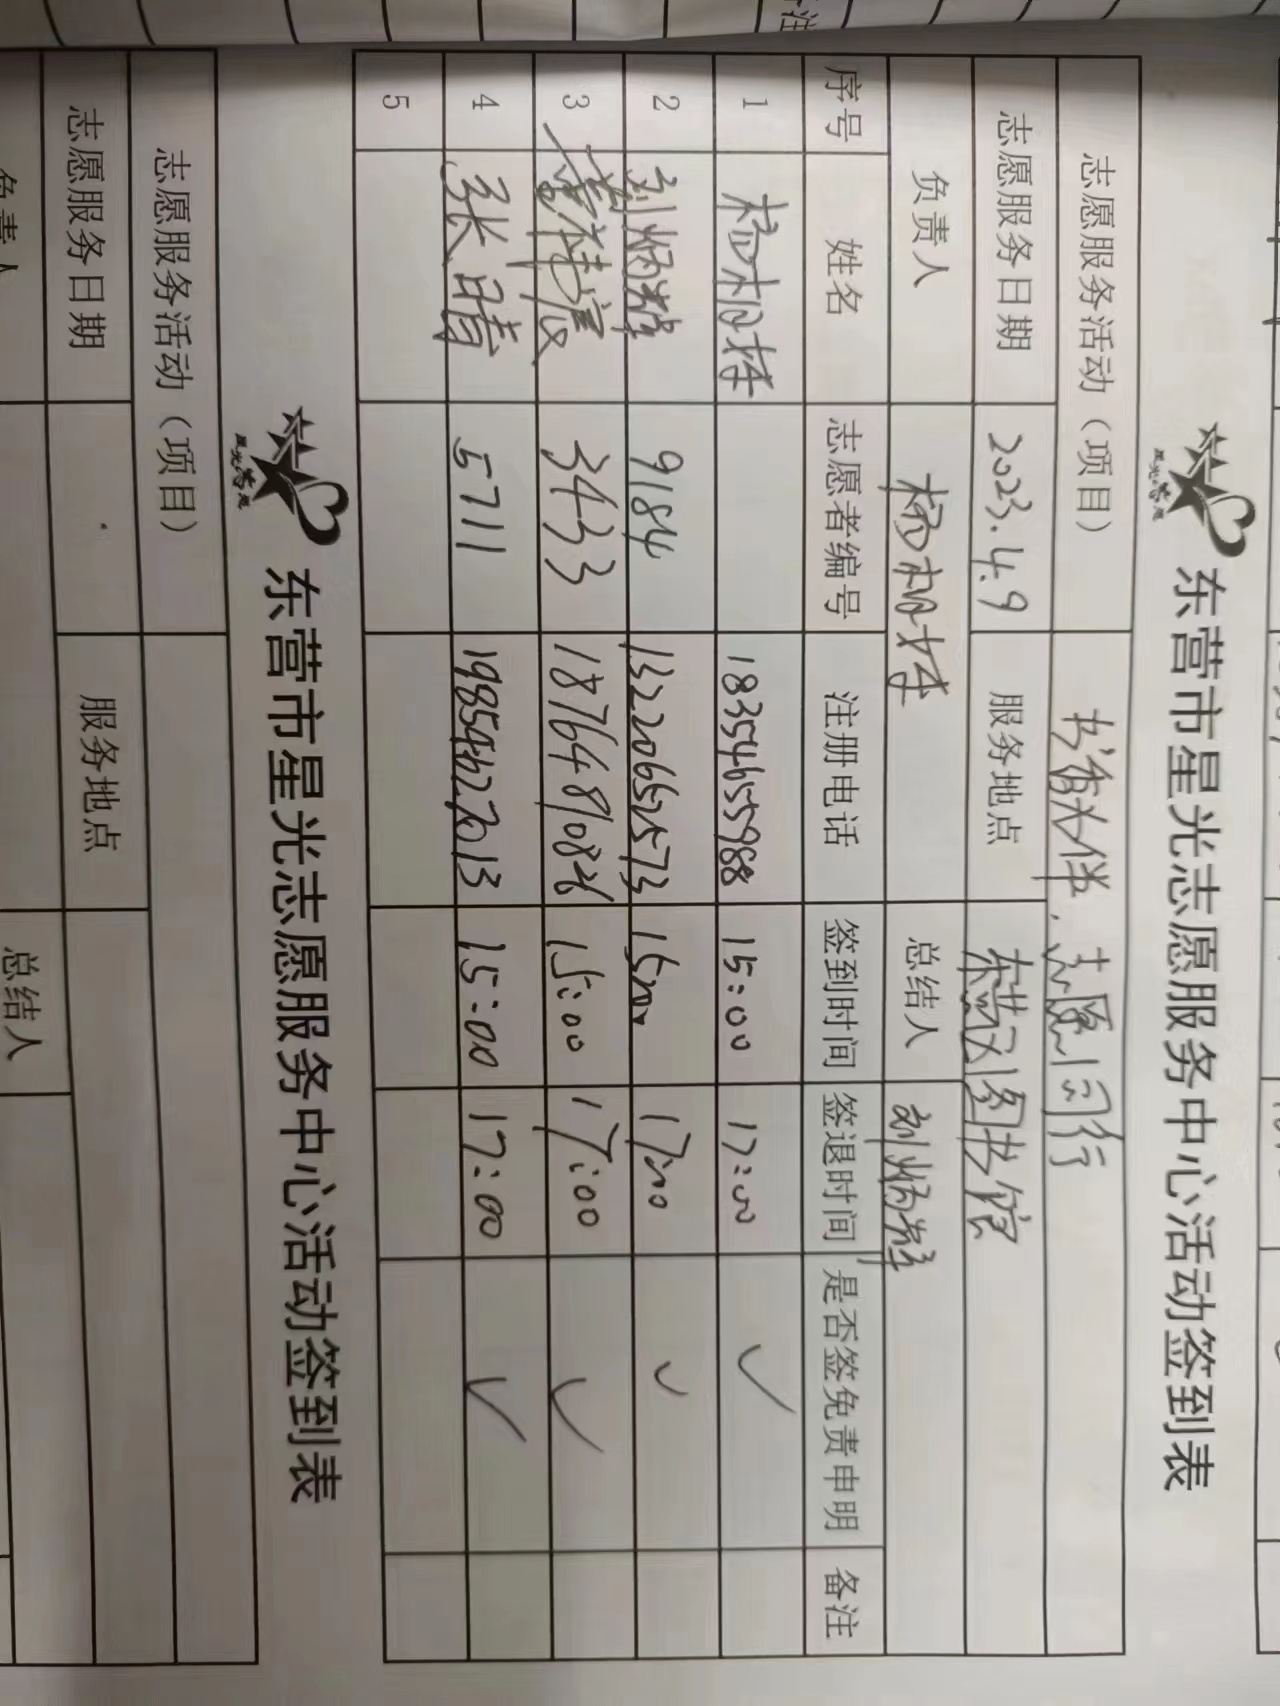 东营市星光志愿服务中心活动签到表
志愿服务活动（项目） 书香为伴，志愿同行
志愿服务日期 2023.4.9 服务地点 东营区图书馆
负责人 杨 总结人 刘炳
序号 姓名 志愿者编号 注册电话 签到时间 签退时间 是否签免责申明 备注
1 杨 18354655988 15:00 17:00 ✓
2 刘炳 9184 13220652573 15:00 17:00 ✓
3 3433 18764810826 15:00 17:00 ✓
4 张晴 5711 15:00 17:00 ✓
5
东营市星光志愿服务中心活动签到表
志愿服务活动（项目）
志愿服务日期 服务地点
负责人 总结人